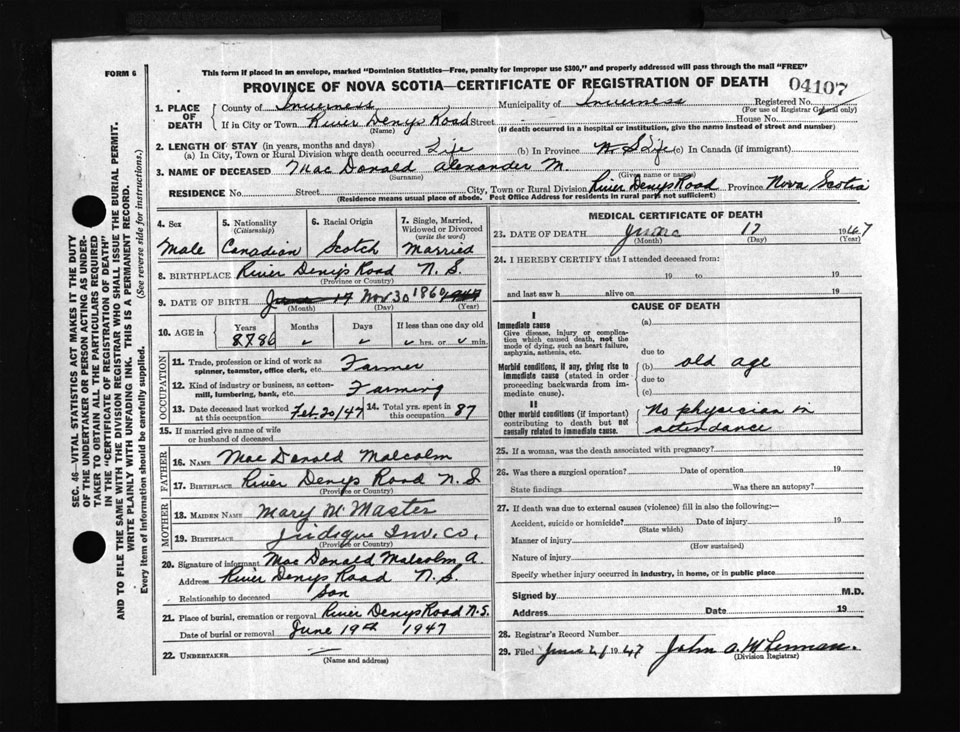 FORM 6
This form if placed in an envelope, marked "Dominion Statistics—Free, penalty for improper use $300," and properly addressed will pass through the mail "FREE"
PROVINCE OF NOVA SCOTIA—CERTIFICATE OF REGISTRATION OF DEATH
04107
SEC. 46—VITAL STATISTICS ACT MAKES IT THE DUTY
OF THE UNDERTAKER OR PERSON ACTING AS UNDER-
TAKER TO OBTAIN ALL THE PARTICULARS REQUIRED
IN THE "CERTIFICATE OF REGISTRATION OF DEATH"
AND TO FILE THE SAME WITH THE DIVISION REGISTRAR WHO SHALL ISSUE THE BURIAL PERMIT.
WRITE PLAINLY WITH UNFADING INK. THIS IS A PERMANENT RECORD.
Every item of information should be carefully supplied. (See reverse side for instructions.)
1. PLACE OF DEATH
County of Inverness Municipality of Inverness Registered No.
(For use of Registrar General only)
If in City or Town River Denys Road Street House No.
(Name) (If death occurred in a hospital or institution, give the name instead of street and number)
2. LENGTH OF STAY (in years, months and days)
(a) In City, Town or Rural Division where death occurred Life (b) In Province N. S Life (c) In Canada (if immigrant)
3. NAME OF DECEASED Mac Donald Alexander M.
(Surname) (Given name or names)
RESIDENCE No. Street City, Town or Rural Division River Denys Road Province Nova Scotia
(Residence means usual place of abode. Post Office Address for residents in rural parts not sufficient)
4. Sex
Male
5. Nationality
(Citizenship)
Canadian
6. Racial Origin
Scotch
7. Single, Married,
Widowed or Divorced
(write the word)
Married
8. BIRTHPLACE River Denys Road N. S.
(Province or Country)
9. DATE OF BIRTH June 17 Nov 30 1860 1947
(Month) (Day) (Year)
10. AGE in
Years Months Days If less than one day old
8786 hrs. or min.
OCCUPATION
11. Trade, profession or kind of work as
spinner, teamster, office clerk, etc. Farmer
12. Kind of industry or business, as cotton-
mill, lumbering, bank, etc. Farming
13. Date deceased last worked
at this occupation Feb 20/47
14. Total yrs. spent in
this occupation 87
15. If married give name of wife
or husband of deceased
FATHER
16. NAME Mac Donald Malcolm
17. BIRTHPLACE River Denys Road N. S
(Province or Country)
MOTHER
18. MAIDEN NAME Mary McMaster
19. BIRTHPLACE Judique Inv. Co.
(Province or Country)
20. Signature of informant Mac Donald Malcolm A.
Address River Denys Road N. S.
Relationship to deceased Son
21. Place of burial, cremation or removal River Denys Road N. S.
Date of burial or removal June 19th 1947
22. UNDERTAKER
(Name and address)
MEDICAL CERTIFICATE OF DEATH
23. DATE OF DEATH June 17 1947
(Month) (Day) (Year)
24. I HEREBY CERTIFY that I attended deceased from:
19 to 19
and last saw h alive on 19
CAUSE OF DEATH
I
Immediate cause
Give disease, injury or complica-
tion which caused death, not the
mode of dying, such as heart failure,
asphyxia, asthenia, etc.
(a)
due to
Morbid conditions, if any, giving rise to
immediate cause (stated in order
proceeding backwards from im-
mediate cause).
(b) old age
due to
(c)
II
Other morbid conditions (if important)
contributing to death but not
causally related to immediate cause.
No physician in
attendance
25. If a woman, was the death associated with pregnancy?
26. Was there a surgical operation? Date of operation 19
State findings Was there an autopsy?
27. If death was due to external causes (violence) fill in also the following:—
Accident, suicide or homicide? Date of injury 19
(State which)
Manner of injury
(How sustained)
Nature of injury
Specify whether injury occurred in industry, in home, or in public place
Signed by M.D.
Address Date 19
28. Registrar's Record Number
29. Filed June 1947 John A. McLennan.
(Division Registrar)